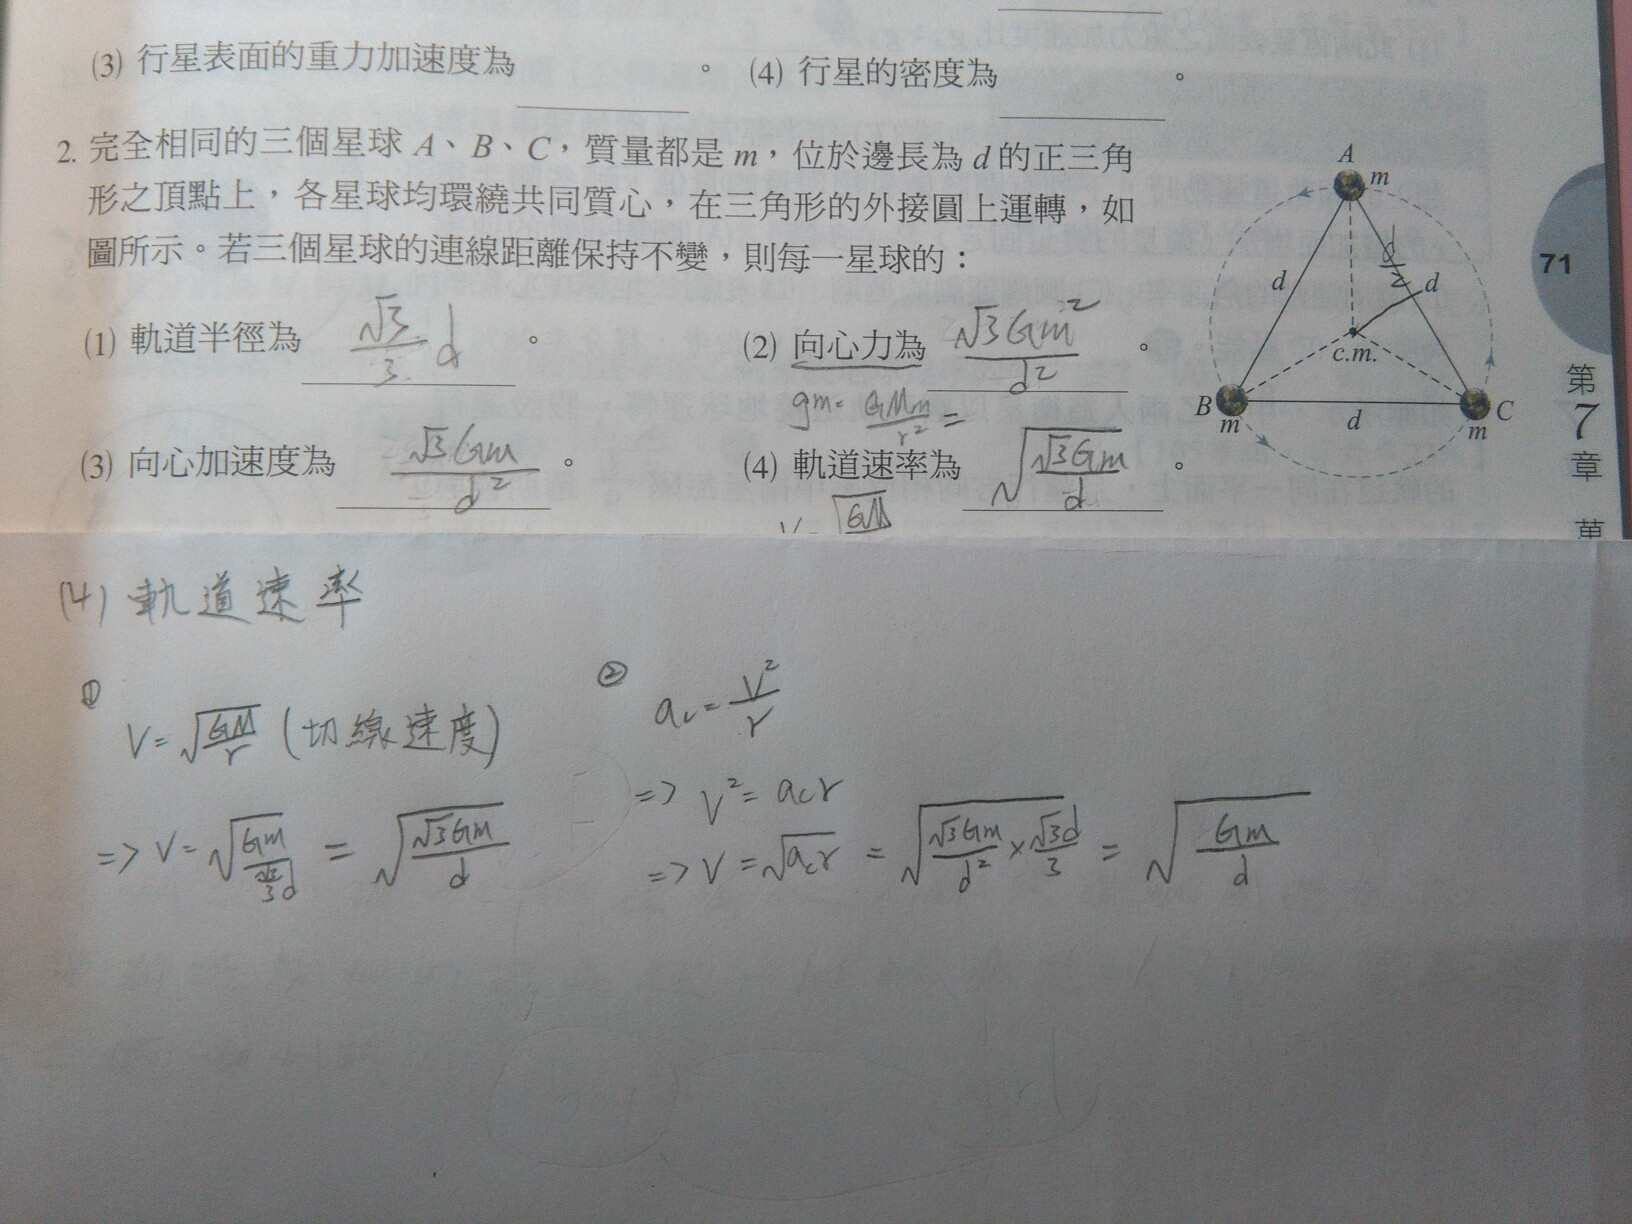 (3) 行星表面的重力加速度為 。 (4) 行星的密度為 。
2. 完全相同的三個星球 A、B、C，質量都是 m，位於邊長為 d 的正三角
形之頂點上，各星球均環繞共同質心，在三角形的外接圓上運轉，如
圖所示。若三個星球的連線距離保持不變，則每一星球的：
(1) 軌道半徑為 √3/3 d 。 (2) 向心力為 √3Gm²/d² 。
gm = GMm/r² =
(3) 向心加速度為 √3Gm/d² 。 (4) 軌道速率為 √(√3Gm/d) 。
V = √GM
A m
d d/2 d
c.m.
B m d m C
71
第
7
章
萬
(4) 軌道速率
① V = √(GM/r) (切線速度)
=> V = √(Gm/(√3/3 d)) = √(√3Gm/d)
② ac = V²/r
=> V² = acr
=> V = √acr = √(√3Gm/d² × √3d/3) = √(Gm/d)